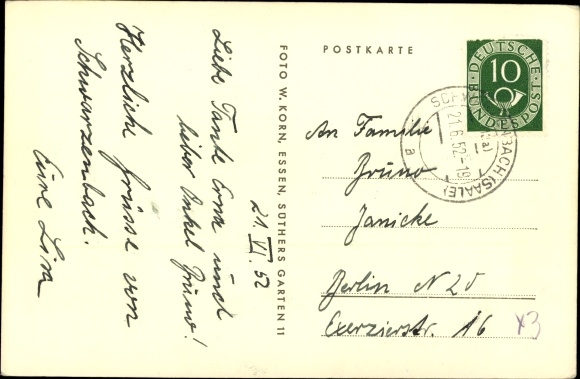 21. VI. 52
Liebe Tante Erna und
lieber Onkel Bruno!
Herzliche Grüsse von
Schwarzenbach.
Eure Lisa
FOTO W. KORN, ESSEN, SÜTHERS GARTEN 11
POSTKARTE
DEUTSCHE
10
BUNDESPOST
BACH (SAALE)
21.6.52-19
a
An Familie
Bruno
Janicke
Berlin N 20
Exerzierstr. 16
x3